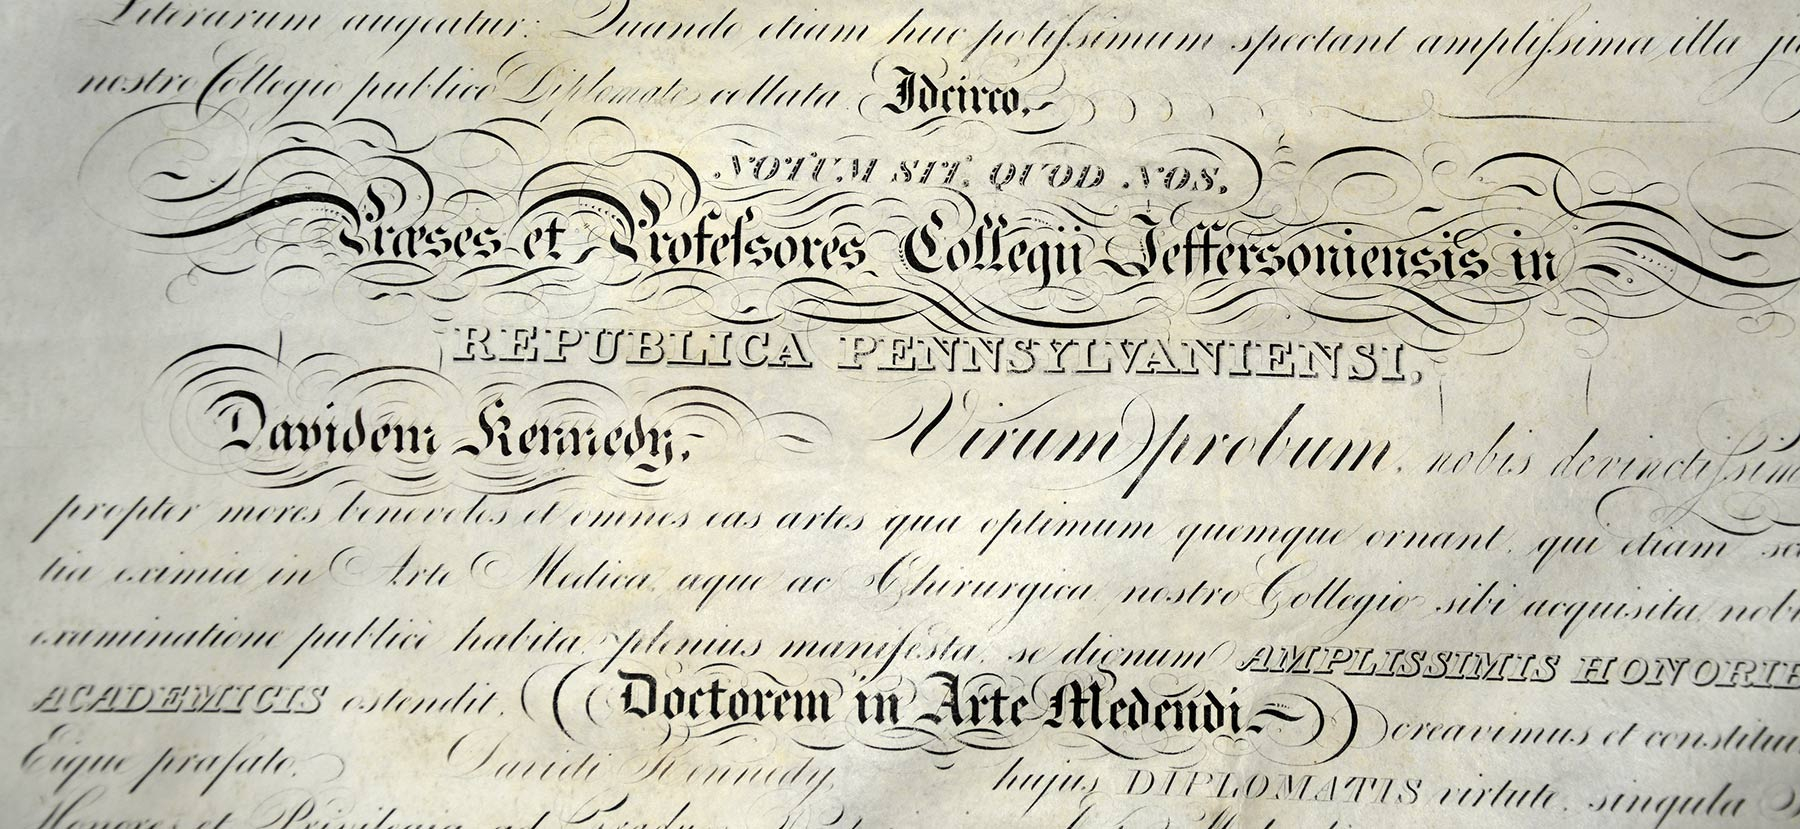 Literarum augeatur: Quando etiam huc potissimum spectant amplissima illa
nostro Collegio publico Diplomate collata. Idcirco,
NOTUM SIT, QUOD NOS,
Præses et Professores Collegii Jeffersoniensis in
REPUBLICA PENNSYLVANIENSI,
Davidem Kennedy, Virum probum, nobis devinctissim
propter mores benevolos et omnes eas artes qua optimum quemque ornant, qui etiam
tia eximia in Arte Medica, æque ac Chirurgica, nostro Collegio sibi acquisita, nobi
examinatione publice habita, plenius manifesta, se dignum AMPLISSIMIS HONORIB
ACADEMICIS ostendit, (Doctorem in Arte Medendi) creavimus et constitui
Eique præfato, Davidi Kennedy, hujus DIPLOMATIS virtute, singula
Honores et Privilegia ad Gradum